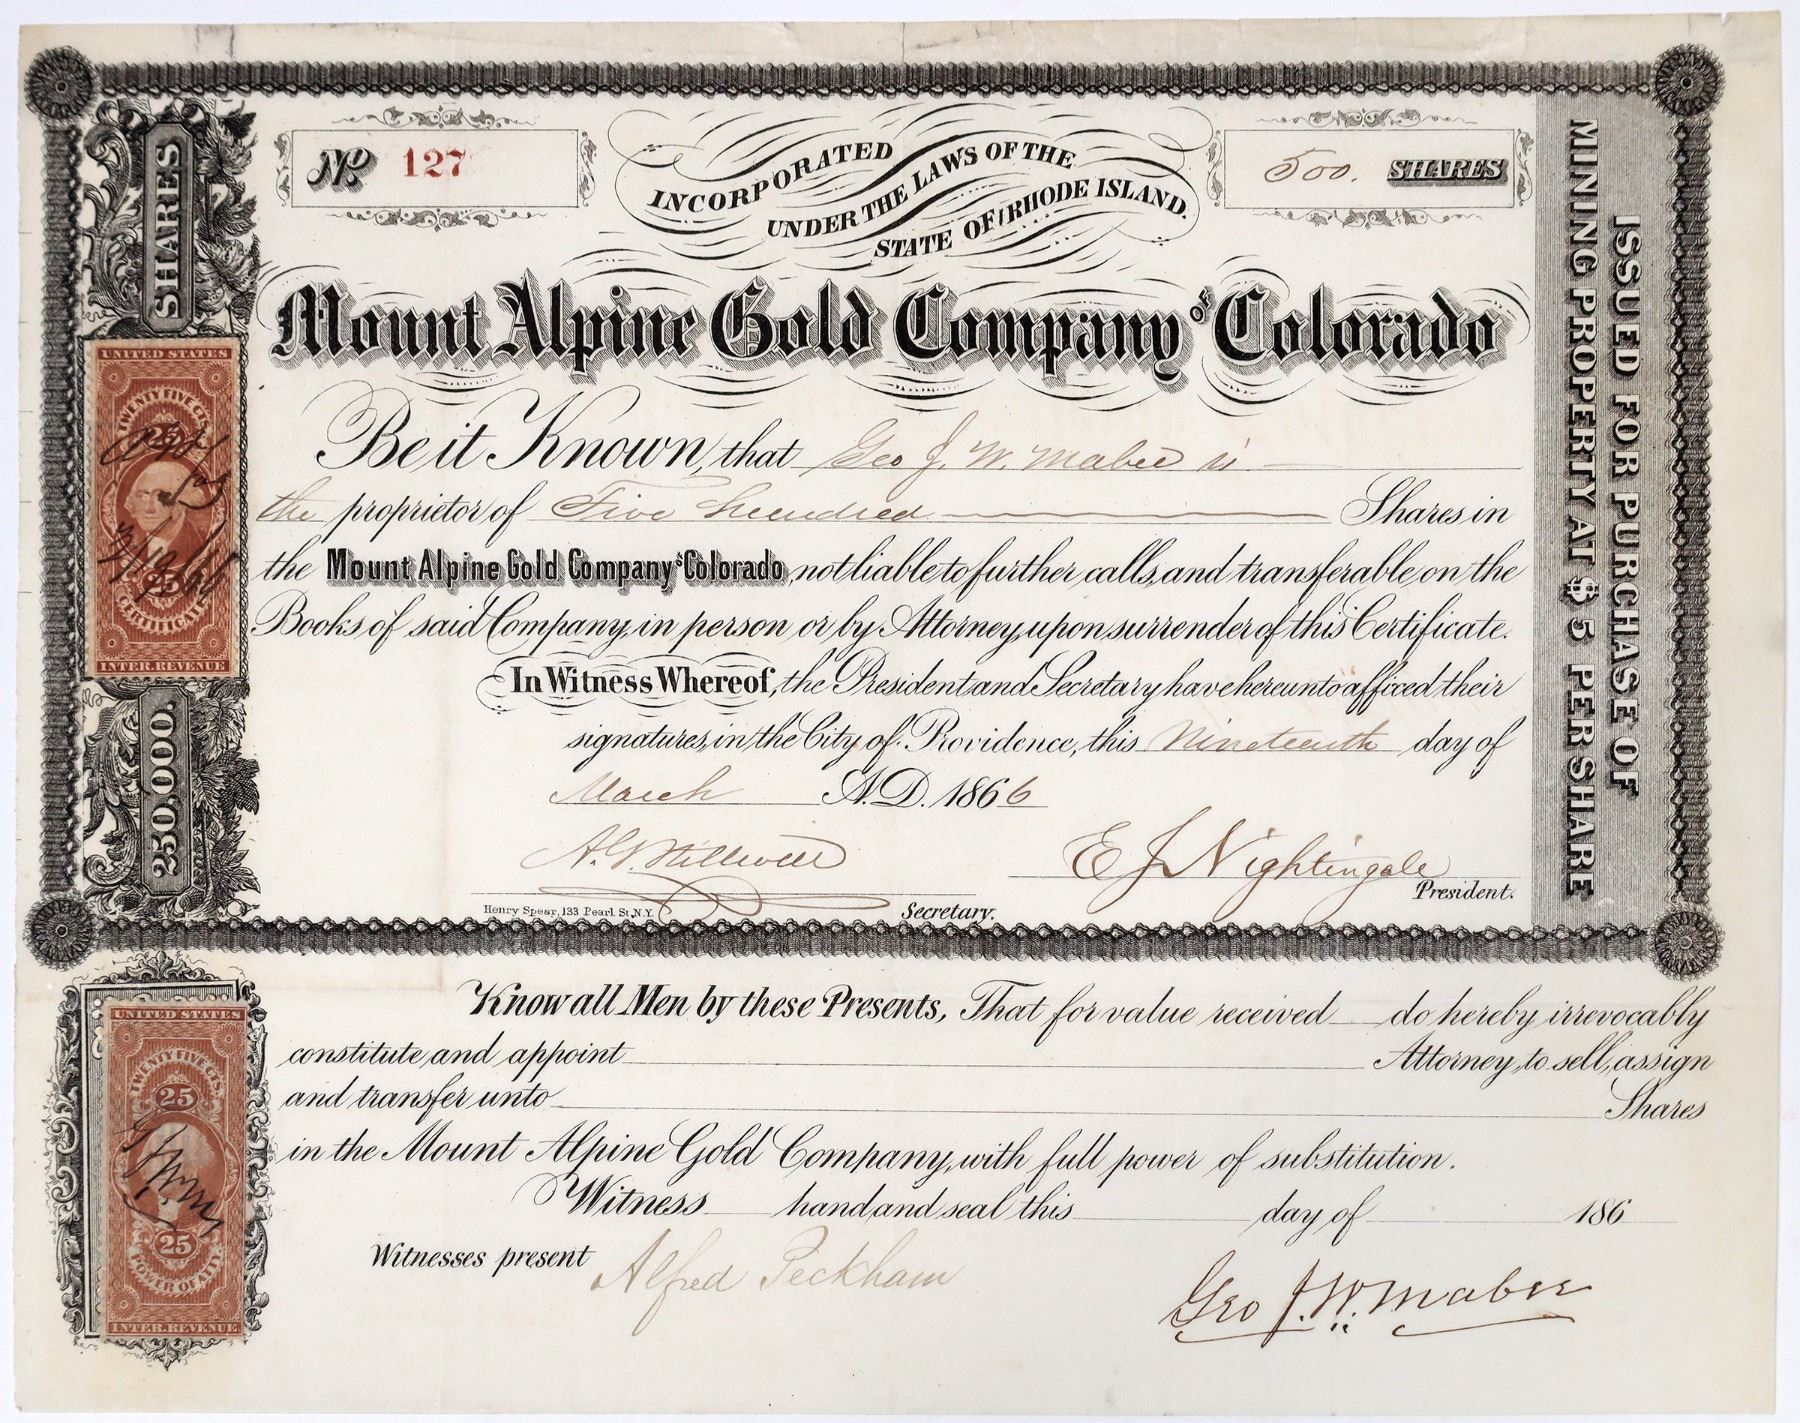 No. 127
INCORPORATED
UNDER THE LAWS OF THE
STATE OF RHODE ISLAND.
500. SHARES
Mount Alpine Gold Company of Colorado
Be it Known, that Geo J. W. Mabee is
the proprietor of Five Hundred Shares in
the Mount Alpine Gold Company of Colorado, not liable to further calls, and transferable on the
Books of said Company, in person or by Attorney, upon surrender of this Certificate.
In Witness Whereof, the President and Secretary have hereunto affixed their
signatures, in the City of Providence, this Nineteenth day of
March A.D. 1866
A. G. Stillwell
E J Nightingale
President.
Henry Spear, 133 Pearl St, N.Y.
Secretary.
SHARES
UNITED STATES
TWENTY FIVE CTS.
25
25
CERTIFICATE
INTER. REVENUE
250,000.
ISSUED FOR PURCHASE OF
MINING PROPERTY AT $5 PER SHARE
Know all Men by these Presents, That for value received do hereby irrevocably
constitute and appoint Attorney, to sell, assign
and transfer unto Shares
in the Mount Alpine Gold Company, with full power of substitution.
Witness hand and seal this day of 186
Witnesses present Alfred Peckham
Geo J. W. Mabee
UNITED STATES
TWENTY FIVE CTS.
25
25
POWER OF ATTY.
INTER. REVENUE